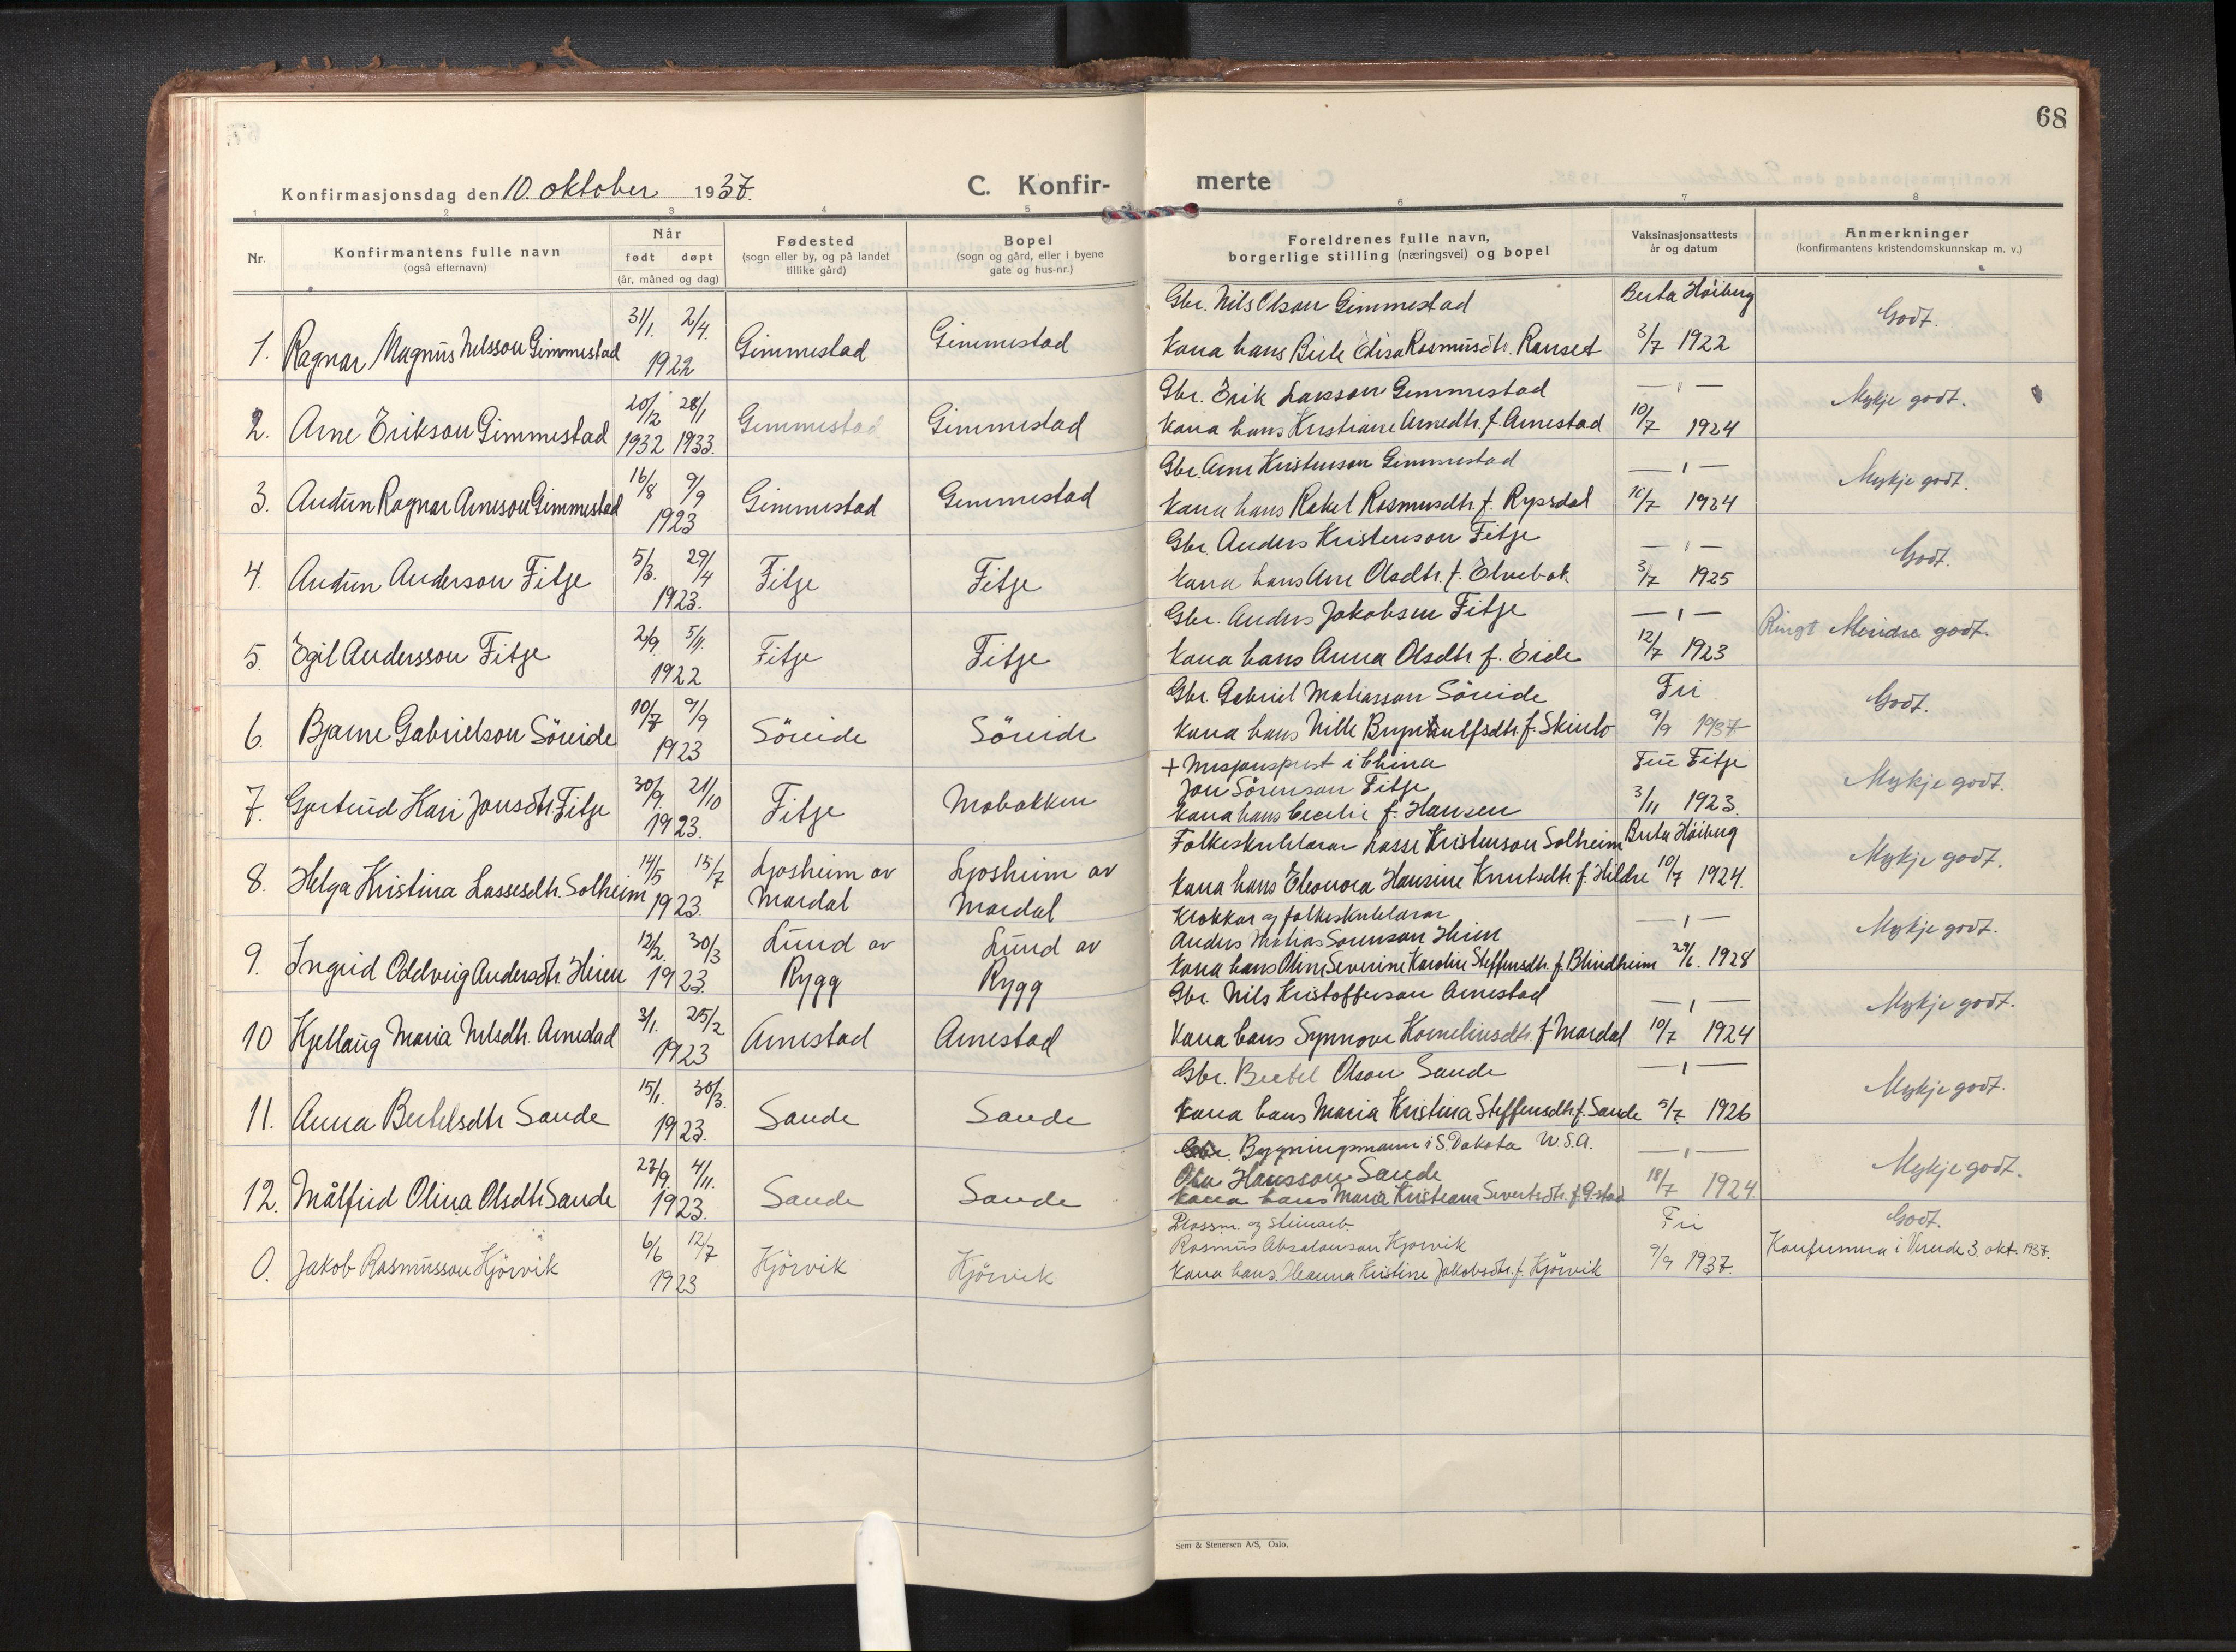 68
Konfirmasjonsdag den 10. oktober 1937.
C. Konfir-
merte
1 2 3 4 5 6 7 8
Nr.
Konfirmantens fulle navn
(også efternavn)
Når
født døpt
(år, måned og dag)
Fødested
(sogn eller by, og på landet
tillike gård)
Bopel
(sogn og gård, eller i byene
gate og hus-nr.)
Foreldrenes fulle navn,
borgerlige stilling (næringsvei) og bopel
Vaksinasjonsattests
år og datum
Anmerkninger
(konfirmantens kristendomskunnskap m. v.)
1. Ragnar Magnus Nilsson Gimmestad
31/1. 2/4.
1922
Gimmestad
Gimmestad
Gbr. Nils Olson Gimmestad
kona hans Elisa Rasmusdtr. Ranset
Berta Höiberg
3/7 1922
Godt.
2. Arne Erikson Gimmestad
20/12 28/1
1932 1933.
Gimmestad
Gimmestad
Gbr. Erik Larsson Gimmestad
kona hans Kristiane Arnedtr. f. Arnestad
— " —
10/7 1924
Mykje godt.
3. Audun Ragnar Arneson Gimmestad
16/8 9/9
1923
Gimmestad
Gimmestad
Gbr. Arne Kristenson Gimmestad
kona hans Rakel Rasmusdtr. f. Rypsdal
— " —
10/7 1924
Mykje godt.
4. Audun Anderson Fitje
5/3. 29/4
1923.
Fitje
Fitje
Gbr. Anders Kristenson Fitje
kona hans Ane Olsdtr. f. Elvebok
— " —
3/7 1925
Godt.
5. Egil Andersson Fitje
2/9. 5/11.
1922
Fitje
Fitje
Gbr. Anders Jakobsen Fitje
kona hans Anna Olsdtr f. Eide
— " —
12/7 1923
Ringt Mindre godt.
6. Bjarne Gabrielson Söreide
10/7 9/9
1923
Söreide
Söreide
Gbr. Gabriel Matiasson Söreide
kona hans Nille Brynhulfsdtr. f. Skinlo
Fri
9/9 1937
Godt.
7. Gjertrud Kari Jonsdtr. Fitje
30/9. 21/10
1923.
Fitje
Mobakken
+ Misjonsprest i China
Jon Sörenson Fitje
kona hans Cecilie f. Hansen
Fitje
3/11 1923.
Mykje godt.
8. Helga Kristina Lassesdtr. Solheim
14/5 15/7
1923.
Ljosheim av
Mardal
Ljosheim av
Mardal
Folkeskulelærar Lasse Kristenson Solheim
kona hans Eleonora Hansine Knutsdtr f. Hildre
Berta Höiberg
10/7 1924.
Mykje godt.
9. Ingrid Oddveig Andersdtr. Heien
12/2. 30/3
1923.
Lund av
Rygg
Lund av
Rygg
Klokkar og folkeskulelærar
Anders Matias Sörenson Heien
kona hans Oline Severine Karoline Steffensdtr. f. Blindheim
— " —
29/6. 1928
Mykje godt.
10 Kjellaug Maria Nilsdtr. Arnestad
3/1. 25/2
1923
Arnestad
Arnestad
Gbr. Nils Kristofferson Arnestad
kona hans Synnove Korneliusdtr. f. Mardal
— " —
10/7 1924
Mykje godt.
11. Anna Bertelsdtr Sande
15/1. 30/3.
1923.
Sande
Sande
Gbr. Bertel Olson Sande
kona hans Maria Kristina Steffensdtr. f. Sande
— " —
5/7. 1926
Mykje godt.
12. Målfrid Olina Olsdtr Sande
27/9. 4/11.
1923.
Sande
Sande
Bygningsmann i S. Dakota U.S.A.
Ola Hansson Sande
kona hans Maria Kristiana Sivertsdtr. f.
— " —
18/7 1924.
Mykje godt.
0. Jakob Rasmusson Kjörvik
6/6 12/7
1923
Kjörvik
Kjörvik
Plassm. og steinarb.
Rasmus Absalonson Kjorvik
kona hans Kristine Jakobsdtr. f. Kjörvik
Fri
9/9 1937.
Godt.
Konfirmera i Vereide 3. okt. 1937.
Sem & Stenersen A/S, Oslo.